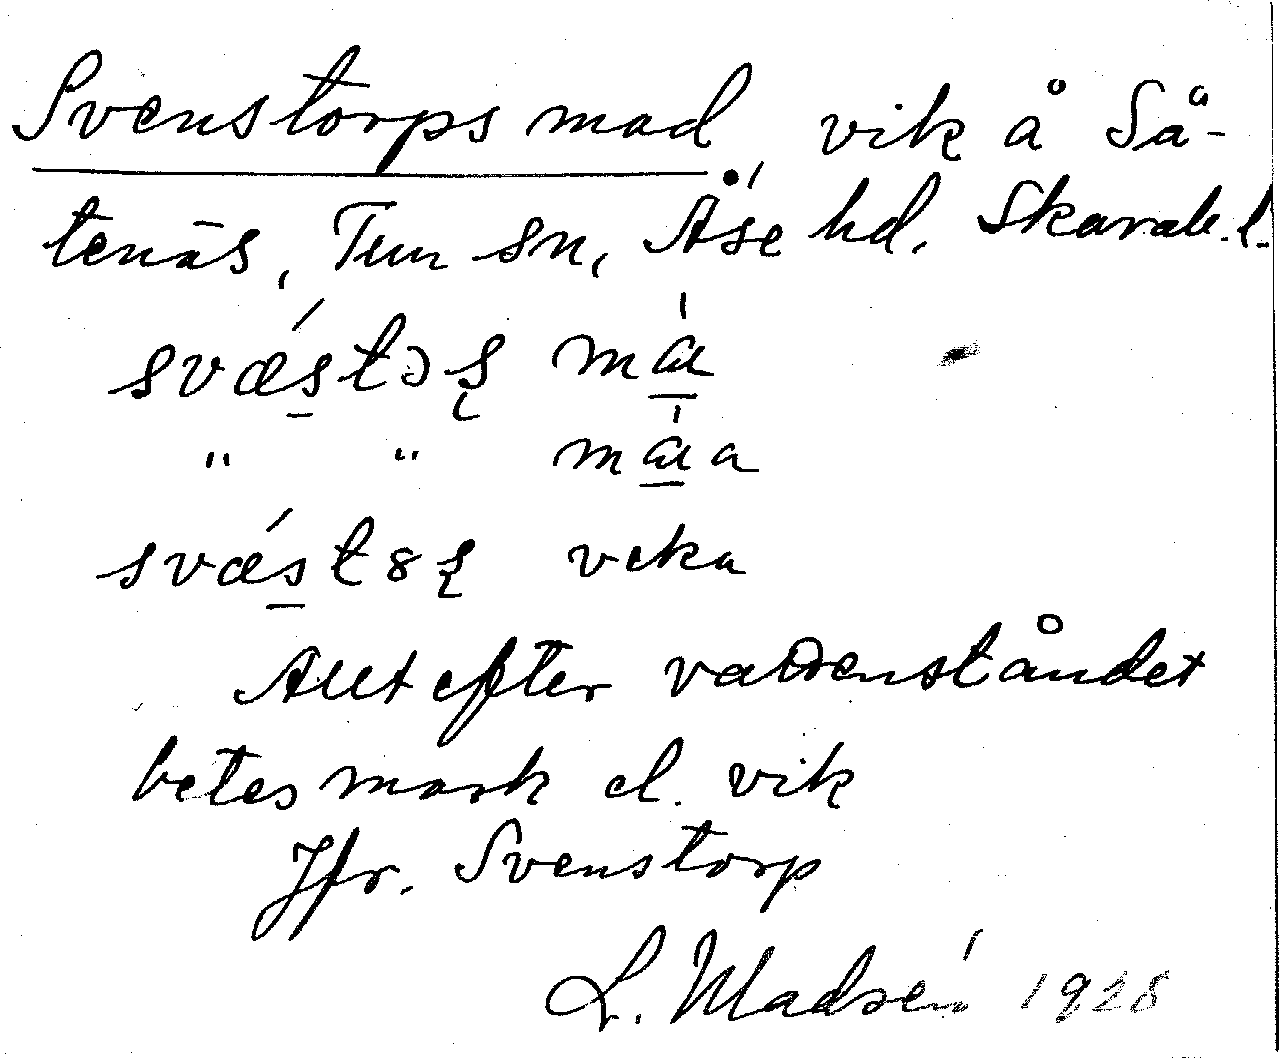 Svenstorps mad, vik å Så-
tenäs, Tun sn, Åse hd. Skarab. l.
svǽs̠təʂ má̠
" " má̠a
svǽs̠t8ʂ veka
Allt efter vattenståndet
betesmark el. vik
Jfr. Svenstorp
L. Madsén 1928